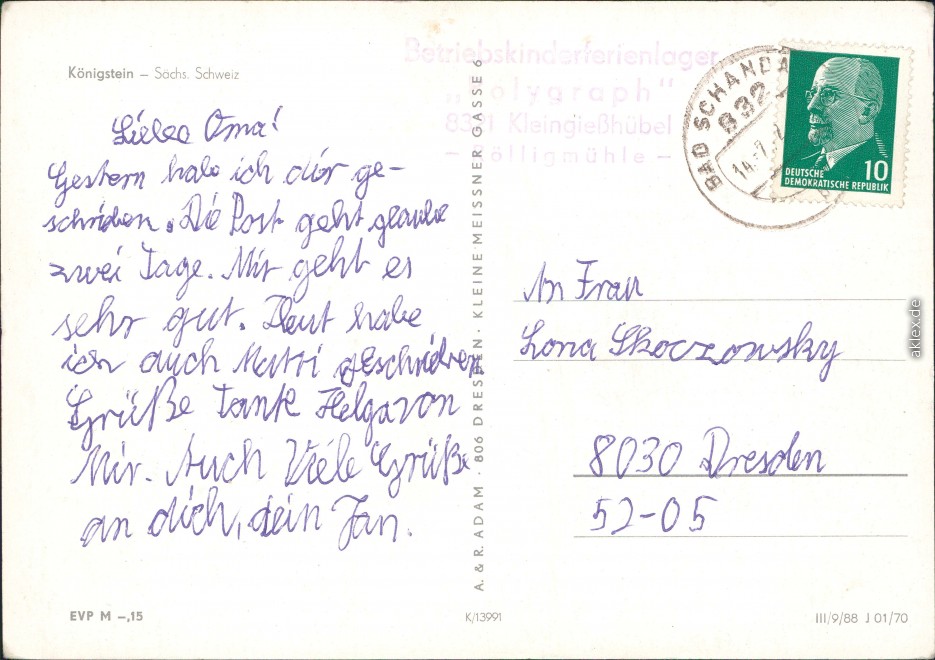 Königstein – Sächs. Schweiz
Liebe Oma!
Gestern habe ich dir ge-
schriben. Die Post geht glaube
zwei Tage. Mir geht es
sehr gut. Heut habe
ich auch Mutti geschriben
Grüße Tante Helga von
Mir. Auch Viele Grüße
an dich, dein Jan.
EVP M –,15
A. & R. ADAM · 806 DRESDEN · KLEINE MEISSNER GASSE 6
K/13991
Betriebskinderferienlager
„Polygraph"
8321 Kleingießhübel
– Rölligmühle –
BAD SCHANDA
832
14.-7.
DEUTSCHE
DEMOKRATISCHE REPUBLIK
10
An Frau
Lona Skoczowsky
8030 Dresden
52-05
III/9/88 J 01/70
aklex.de